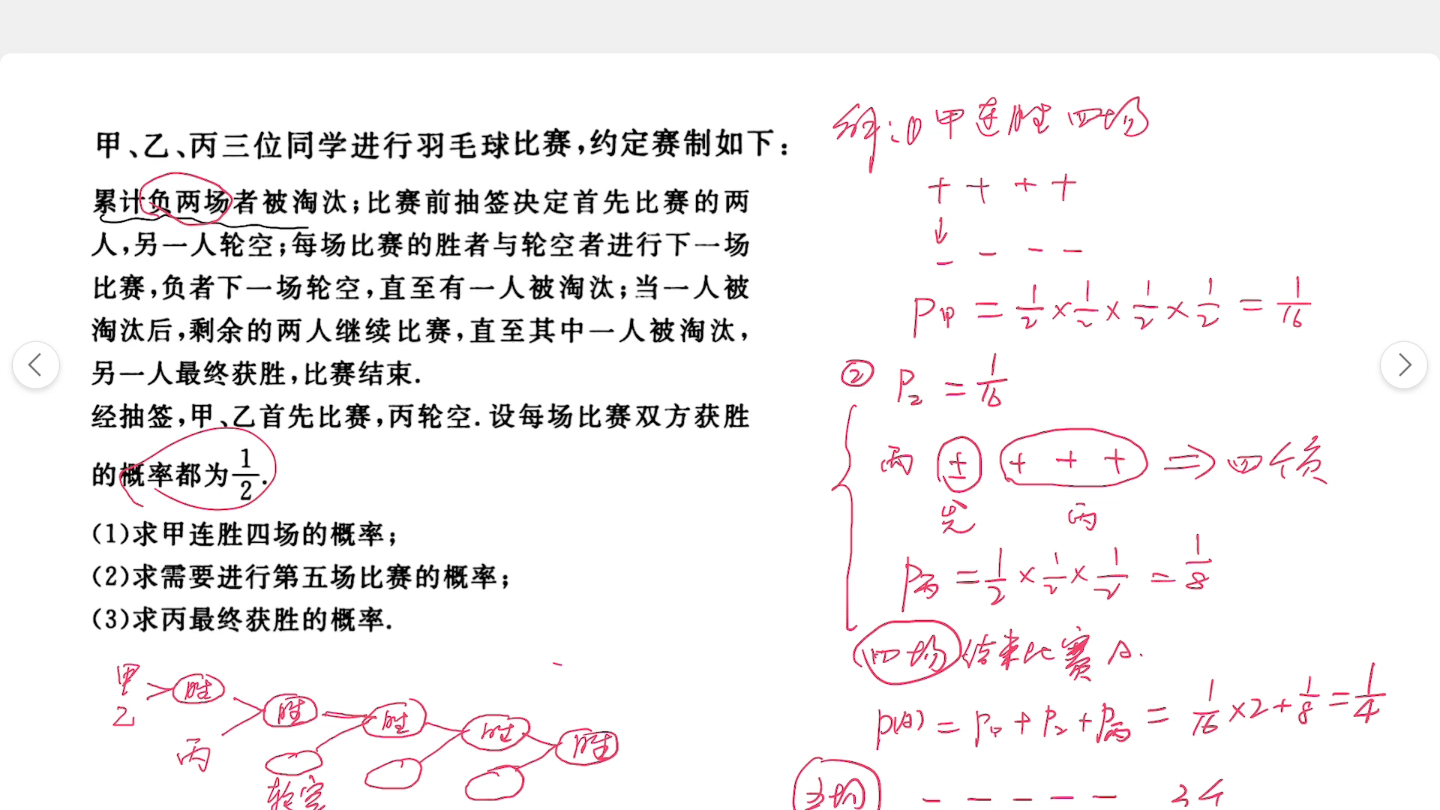 甲、乙、丙三位同学进行羽毛球比赛,约定赛制如下:
累计负两场者被淘汰;比赛前抽签决定首先比赛的两
人,另一人轮空;每场比赛的胜者与轮空者进行下一场
比赛,负者下一场轮空,直至有一人被淘汰;当一人被
淘汰后,剩余的两人继续比赛,直至其中一人被淘汰,
另一人最终获胜,比赛结束.
经抽签,甲、乙首先比赛,丙轮空.设每场比赛双方获胜
的概率都为1/2.
(1)求甲连胜四场的概率;
(2)求需要进行第五场比赛的概率;
(3)求丙最终获胜的概率.
甲
乙
胜
胜
胜
胜
胜
丙
轮空
解:① 甲连胜四场
+ + + +
↓
- - - -
P甲 = 1/2 × 1/2 × 1/2 × 1/2 = 1/16
② P乙 = 1/16
丙 ± + + + ⇒ 四个负
丙
P丙 = 1/2 × 1/2 × 1/2 = 1/8
四场结束比赛 A.
P(A) = P甲 + P乙 + P丙 = 1/16 × 2 + 1/8 = 1/4
- - - - -